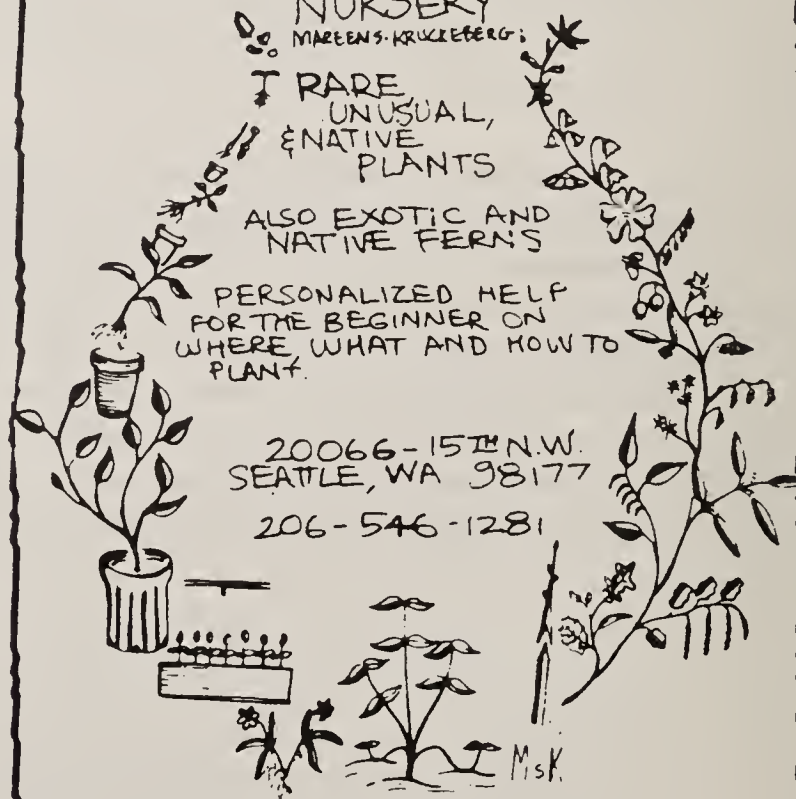 NURSERY
MAREEN S. KRUCKEBERG:
RARE,
UNUSUAL,
& NATIVE
PLANTS
ALSO EXOTIC AND
NATIVE FERNS
PERSONALIZED HELP
FOR THE BEGINNER ON
WHERE, WHAT AND HOW TO
PLANT.
20066-15TH N.W.
SEATTLE, WA 98177
206-546-1281
MSK